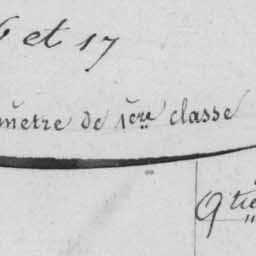 6 et 17
mètre de 1ère classe
9 tie